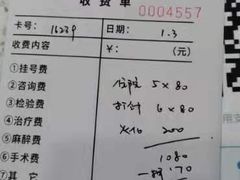 收费单
0004557
卡号： 16239 日期： 1.3
收费内容 ¥： （元）
①挂号费
②咨询费 5×80
③检验费 打针 6×80
④治疗费 200
⑤麻醉费
⑥手术费 1080
⑦其它